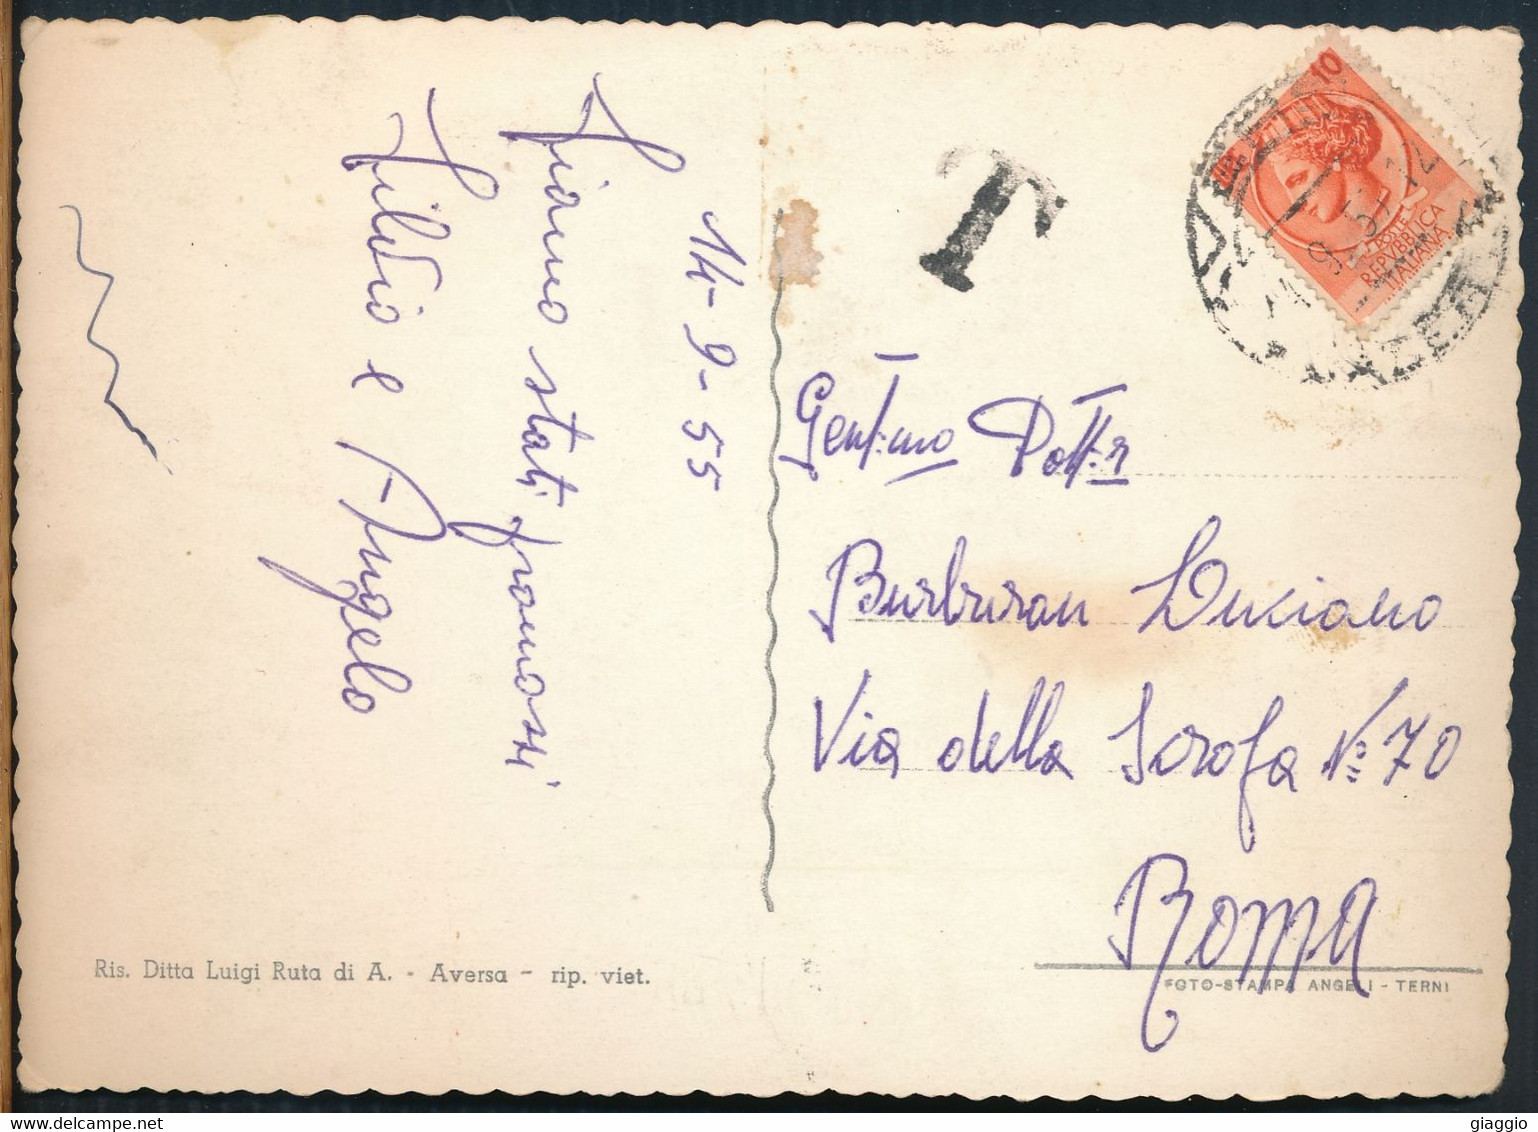 14-9-55
Siamo stati promossi
Silvio e Angelo
T
10
POSTE
REPVBBLICA
ITALIANA
Gent.mo Dott.r
Burburan Luciano
Via della Scrofa N° 70
ROMA
Ris. Ditta Luigi Ruta di A. - Aversa - rip. viet.
FOTO-STAMPA ANGELI - TERNI
giaggio